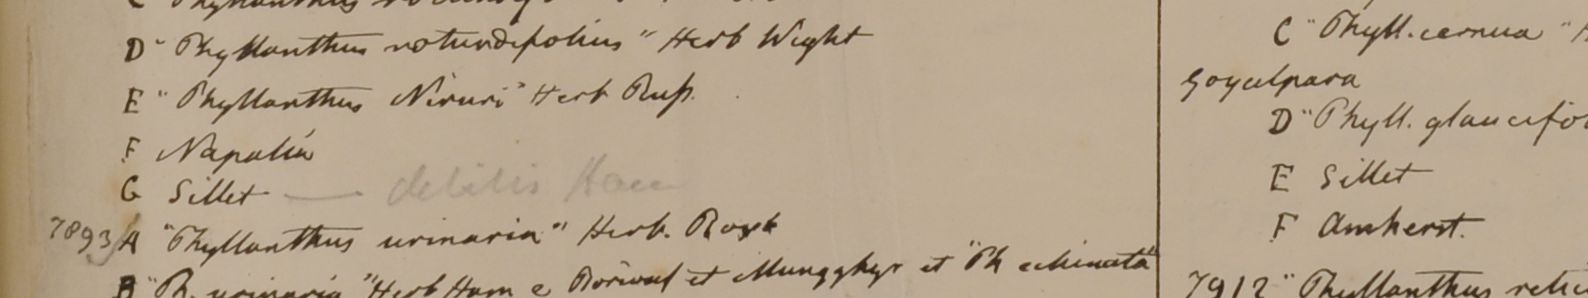 D "Phyllanthus rotundifolius" Herb Wight
E "Phyllanthus Niruri" Herb Russ.
F Napalia
G Sillet — debilis Ham
7893 A "Phyllanthus urinaria" Herb. Roxb
B "P. urinaria" Herb Ham e et Mungghyr et "Ph echinata"
C "Phyll. cernua"
Goyalpara
D "Phyll.
E Sillet
F Amherst.
7912 "Phyllanthus